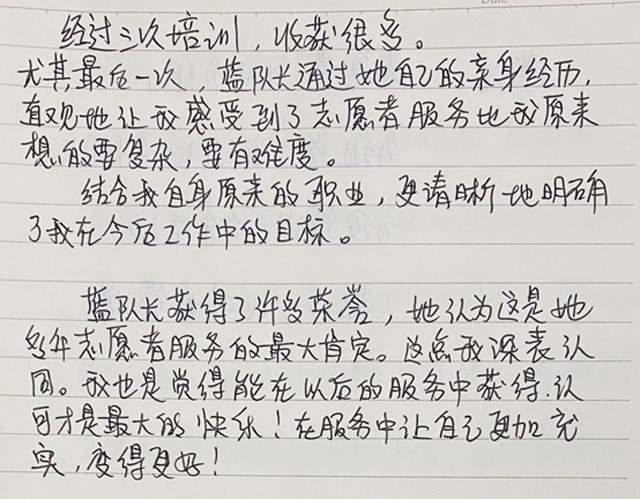 经过三次培训，收获很多。
尤其最后一次，蓝队长通过她自己的亲身经历，
直观地让我感受到了志愿者服务比我原来
想的要复杂，要有难度。
结合我自身原来的职业，更请晰地明确
了我在今后工作中的目标。
蓝队长获得了许多荣誉，她认为这是她
多年志愿者服务的最大肯定。这点我深表认
同。我也是觉得能在以后的服务中获得认
可才是最大的快乐！在服务中让自己更加充
实，变得更好！